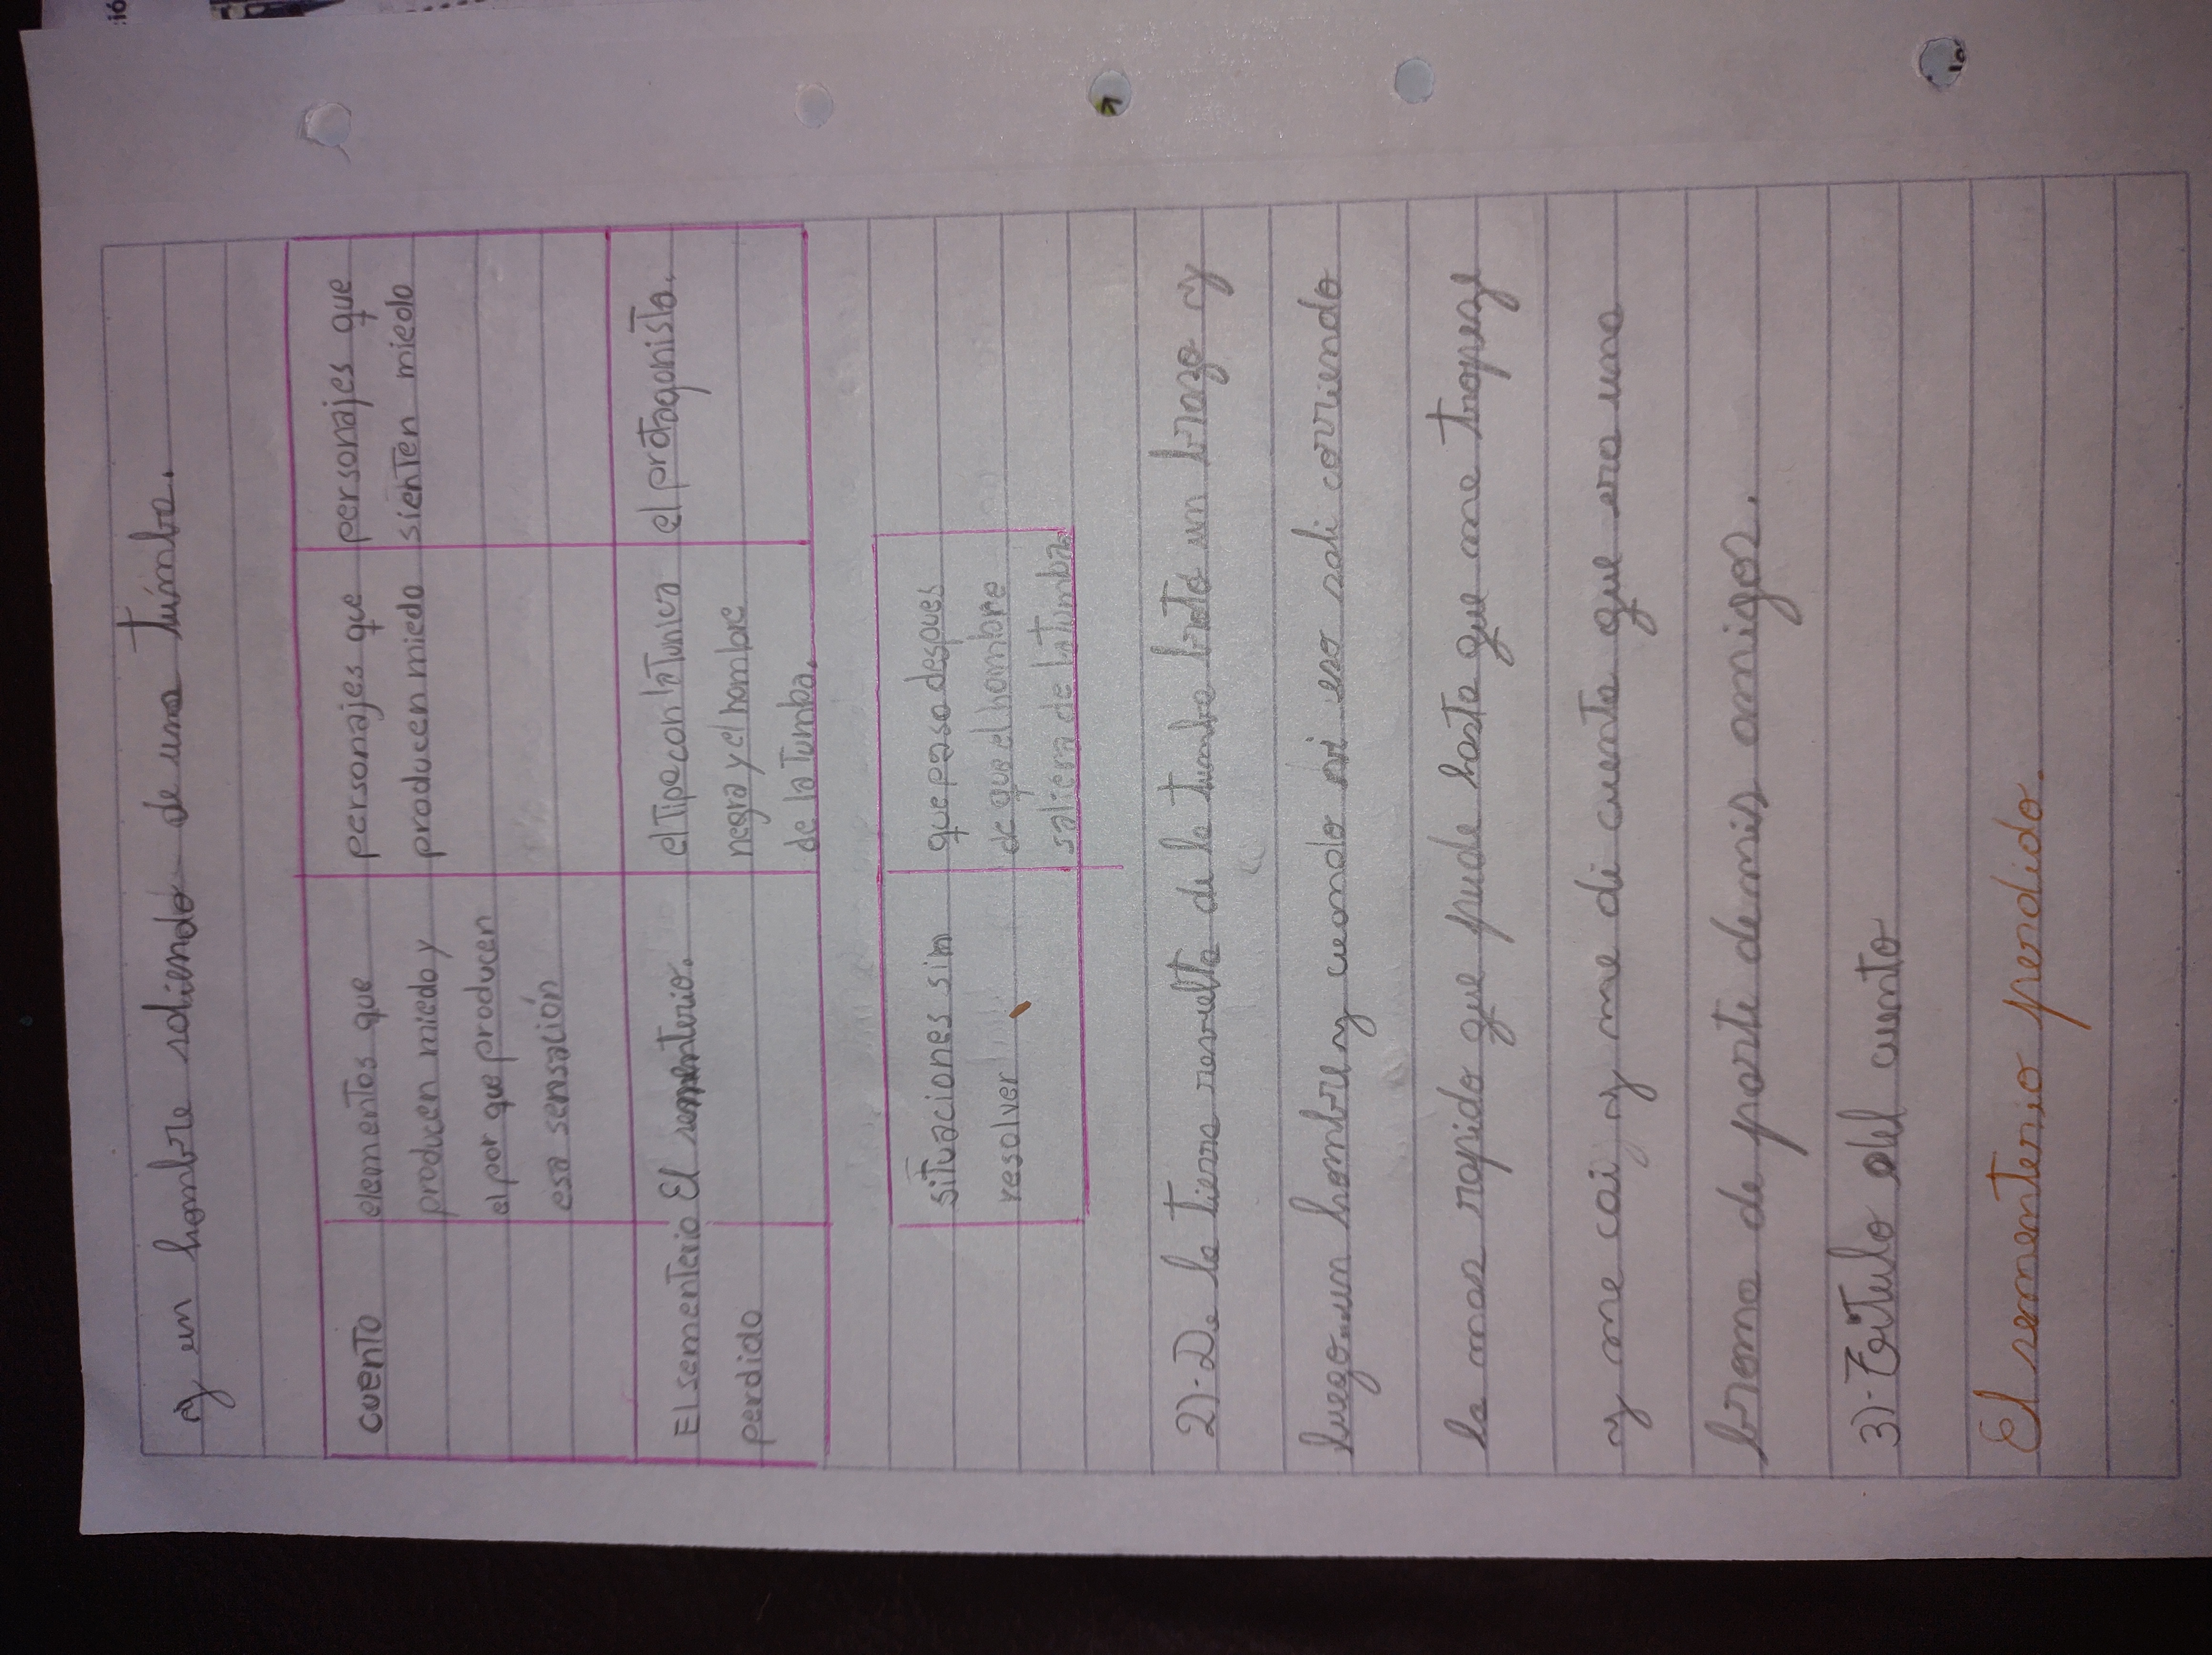 y un hombre saliendo de una túmba.
cuento
elementos que
producen miedo y
el por que producen
esa sensación
personajes que
producen miedo
personajes que
sienten miedo
El sementerio
perdido
El sementerio.
el tipo con la tunica
negra y el hombre
de la tumba.
el protagonista.
situaciones sin
resolver
que paso despues
de que el hombre
saliera de la tumba.
2)-D. la tierra resuelta de la tumba broto un brazo y
luego...un hombre y cuando vi eso sali corriendo
lo mas rapido que pude hasta que me tropesé
y me cai y me di cuenta que era una
broma de parte de mis amigos.
3)-Titulo del cuento
El sementerio perdido.